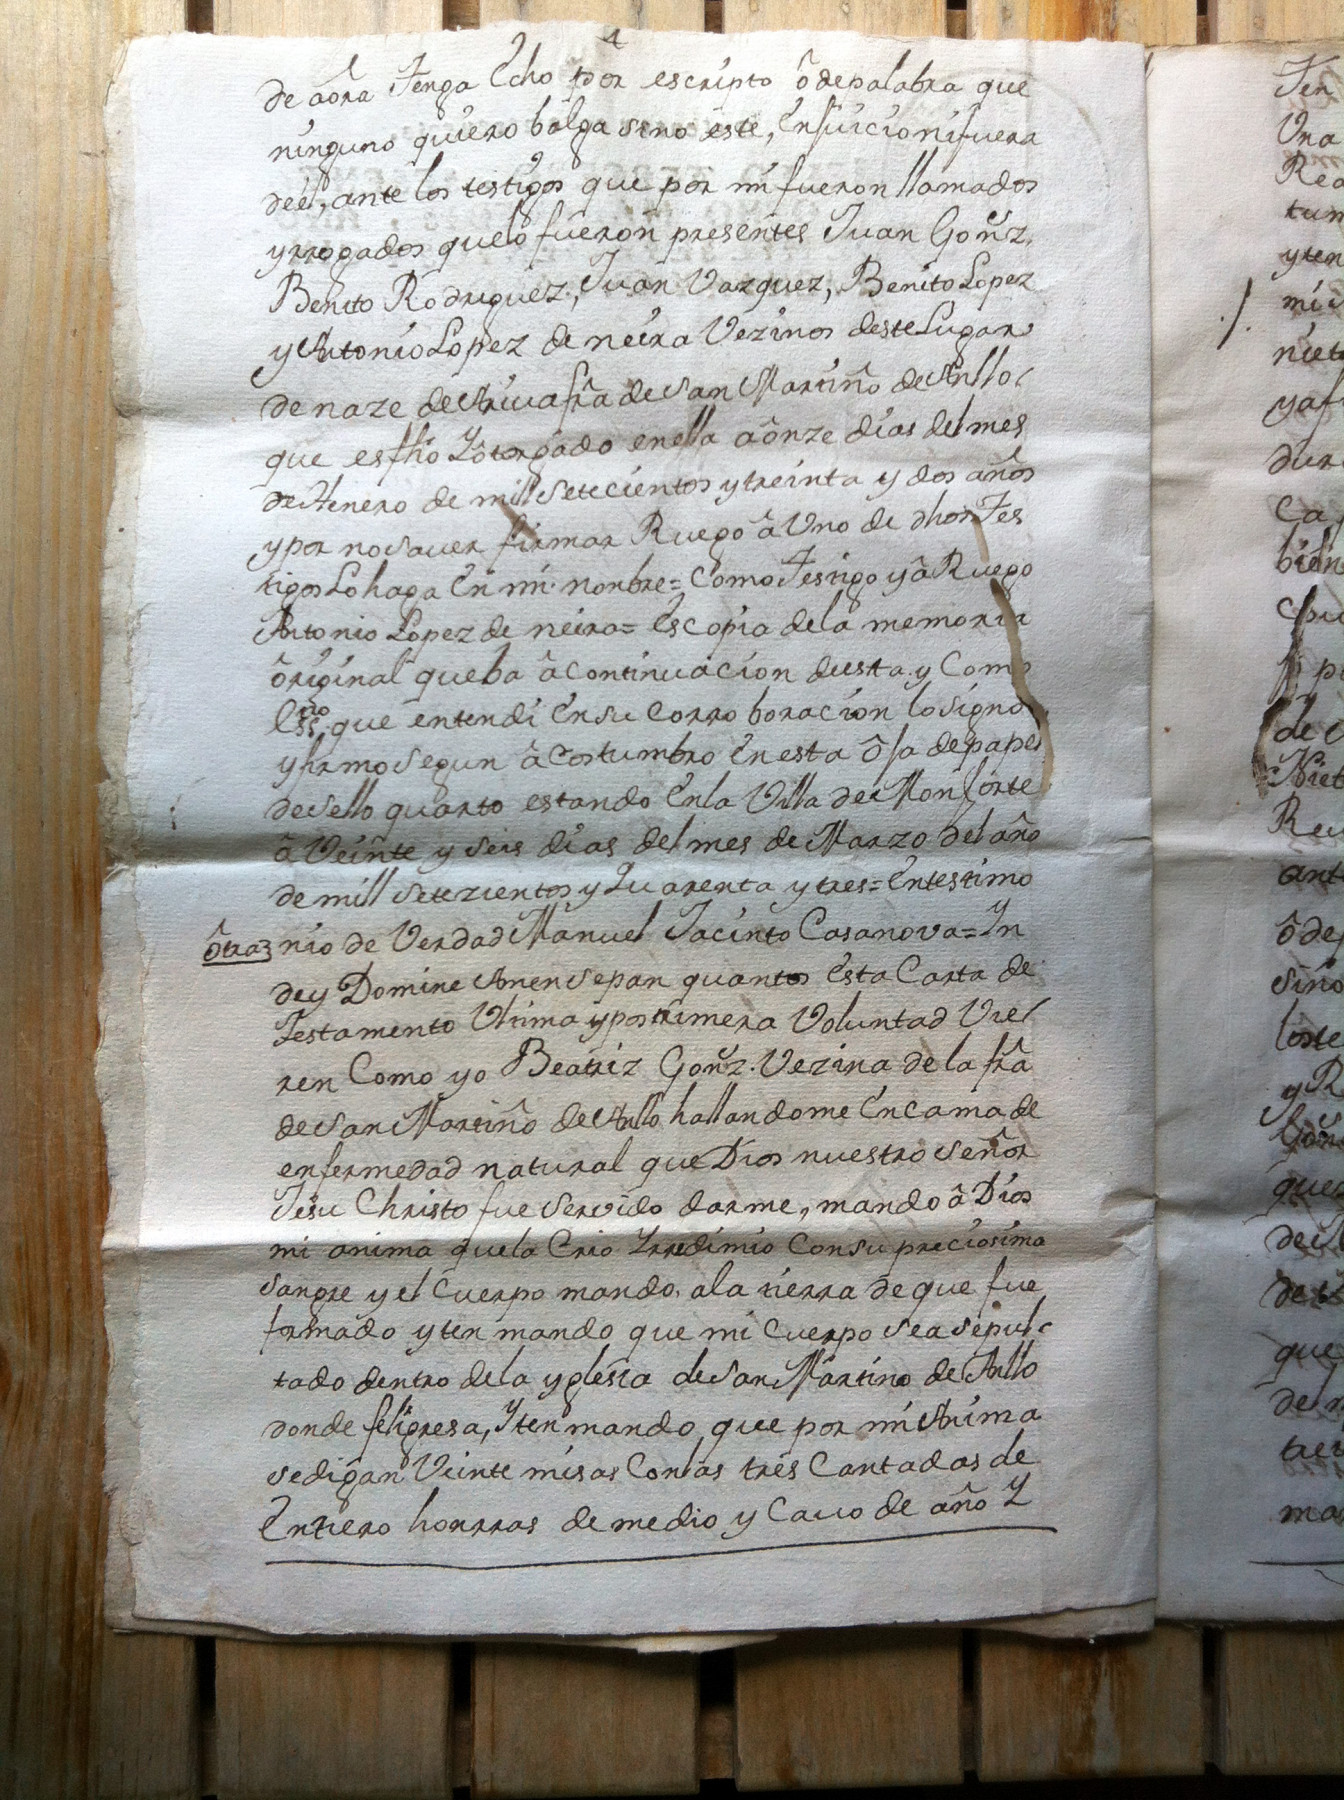 de aôra Tenga Echo por escripto ô depalabra que
ninguno quiero balga sino este, Enjuicio nifuera
deél, ante los testigos que por mi fueron llamados
yrrogados quelo fueron presentes Juan Gonz.
Benito Rodriguez, Juan Vazquez, Benito Lopez
y Antonio Lopez de neira Vezinos deste Lugar
de naze de Arriva frâ de San Martiño de Anllo
que esfho Y ôtorgado enella aônze dias del mes
de Henero de mill Setecientos y treinta y dos años
y por no saver firmar Ruego â Uno de dhos Tes
tigos Lo haga En mi nonbre= Como Testigo y â Ruego
Antonio Lopez de neira= Es copia dela memoria
ôriginal queba âcontinuacion deesta y Como
Essno que entendi Ensu Corro boracion lo signo
y firmo segun âcostumbro En esta ôja de papel
de Sello quarto estando Enla Villa de Monforte
â Veinte y seis dias del mes de Marzo del año
de mill Setezientos y Quarenta y tres= Entestimo
ôtra nio de Verdad Manuel Jacinto Casanova= In
dey Domine Amen Sepan quantos Esta Carta de
Testamento Ultima y postrimera Voluntad Vie
ren Como yo Beatriz Gonz. Vezina de la frâ
de San Martiño de Anllo hallandome En cama de
enfermedad natural que Dios nuestro Señor
Jesu Christo fue Servido darme, mando â Dios
mi anima quela Crio Yrredimio Consu preciosima
sangre y el Cuerpo mando ala tierra de que fue
formado yten mando que mi Cuerpo sea sepul
tado dentro dela yglesia de San Martino de Anllo
donde feligresa, Yten mando que por mi Anima
se digan Veinte misas Con las tres Cantadas de
Entiero honrras de medio y Cavo de año Y